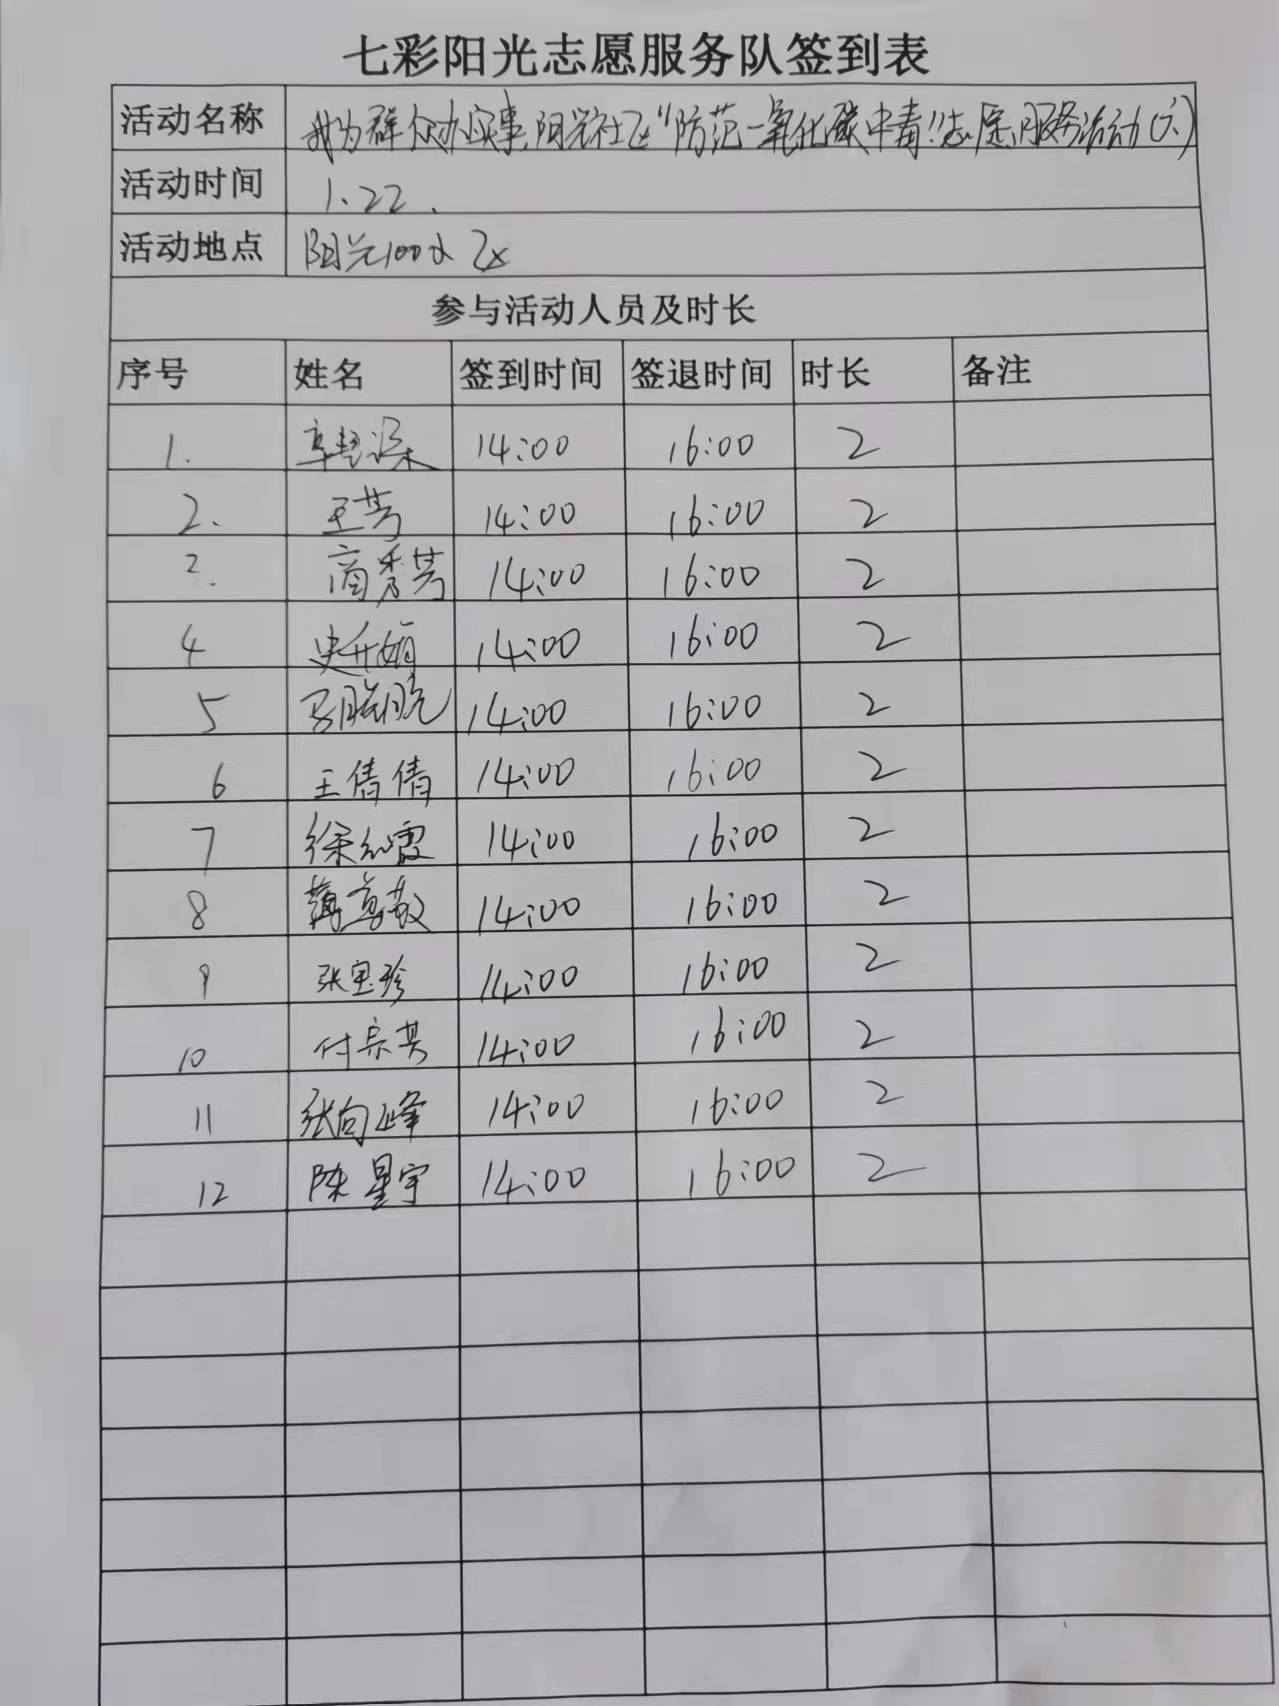 七彩阳光志愿服务队签到表
活动名称 我为群众办实事,阳光社区“防范一氧化碳中毒”志愿服务活动(六)
活动时间 1.22.
活动地点 阳光100
参与活动人员及时长
序号 姓名 签到时间 签退时间 时长 备注
1. 14:00 16:00 2
2. 王芳 14:00 16:00 2
3. 商秀芳 14:00 16:00 2
4 史开娟 14:00 16:00 2
5 14:00 16:00 2
6 王倩倩 14:00 16:00 2
7 徐红霞 14:00 16:00 2
8 14:00 16:00 2
9 张宝珍 14:00 16:00 2
10 付宗英 14:00 16:00 2
11 张向峰 14:00 16:00 2
12 陈星宇 14:00 16:00 2